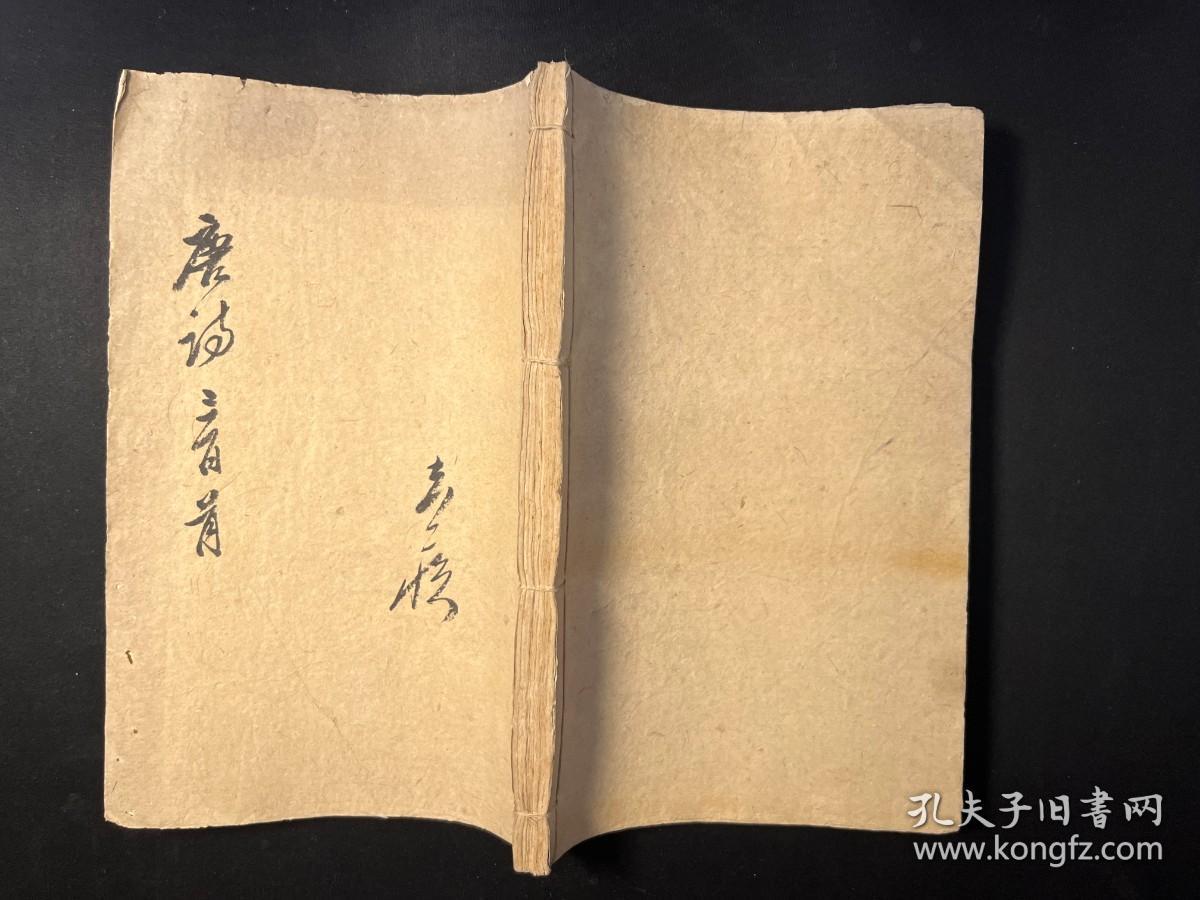 唐诗三百首
孔夫子旧書网
www.kongfz.com